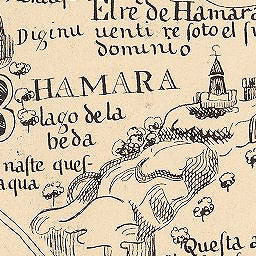 El re de Hamara
Diginu uenti re soto el su
dominio
HAMARA
lago dela
beda
naste ques
aqua
Questa a